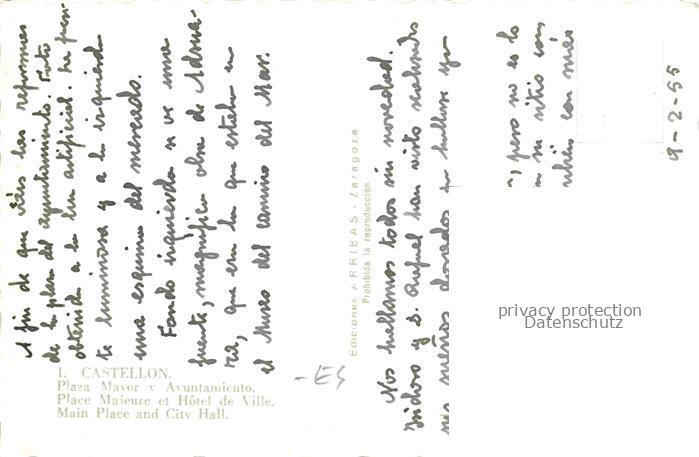 A fin de que veáis las reformas
de la plaza del Ayuntamiento. Foto
obtenida a la luz artificial. La fuen-
te luminosa y a la izquierda
una esquina del mercado.
Fondo izquierda se ve una
fuente, magnífica obra de Adsua-
ra, que era la que estaba en
el Museo del camino del Mar.
1. CASTELLON.
Plaza Mayor y Ayuntamiento.
Place Majeure et Hôtel de Ville.
Main Place and City Hall.
-ES
Ediciones ARRIBAS - Zaragoza
Prohibida la reproducción
Nos hallamos todos sin novedad.
Isidoro y D. Angel han visto
mis sueños dorados
, pero no es lo
su sitio con
con más
9-2-55
privacy protection
Datenschutz